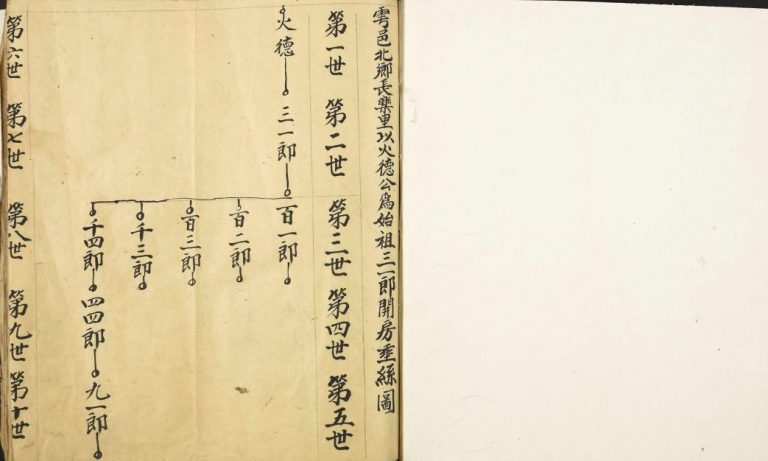 雩邑北鄉長樂里以火德公爲始祖三一郎開房垂絲圖
第一世 第二世 第三世 第四世 第五世
火德 三一郎 百一郎
百二郎
百三郎
千三郎
千四郎 四四郎 九一郎
第六世 第七世 第八世 第九世 第十世